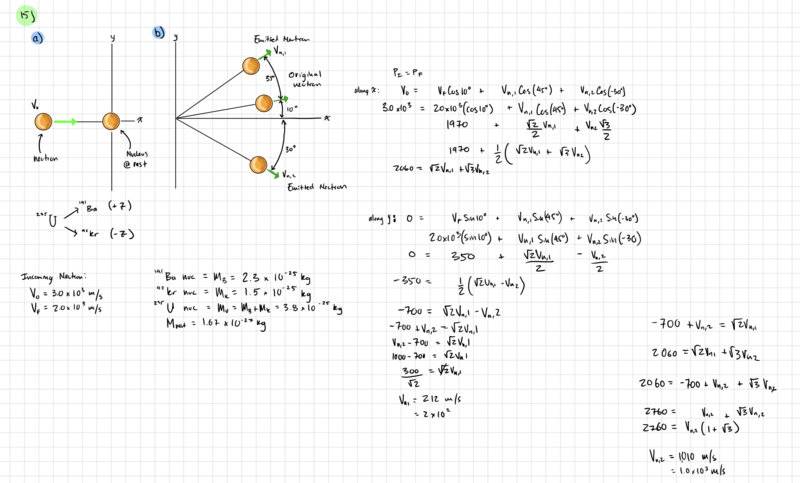 15)
a)
b)
y
x
V₀
neutron
Nucleus
@ rest
y
x
Emitted Neutron
Vn,1
35°
Original
neutron
10°
30°
Vn,2
Emitted Neutron
²³⁵U
¹⁴¹Ba (+z)
⁹²Kr (-z)
Incoming Neutron:
V₀ = 3.0 x 10³ m/s
VF = 2.0 x 10³ m/s
¹⁴¹Ba nuc = MB = 2.3 x 10⁻²⁵ kg
⁹²Kr nuc = MK = 1.5 x 10⁻²⁵ kg
²³⁵U nuc = MU = MB + MK = 3.8 x 10⁻²⁵ kg
Mneut = 1.67 x 10⁻²⁷ kg
PI = PF
along x: V₀ = VF Cos10° + Vn,1 Cos(45°) + Vn,2 Cos(-30°)
3.0 x 10³ = 20x10³(cos10°) + Vn,1 Cos(45°) + Vn,2 Cos(-30°)
1970 + √2/2 Vn,1 + Vn,2 √3/2
1970 + 1/2 (√2Vn,1 + √3 Vn,2)
2060 = √2Vn,1 + √3Vn,2
along y: 0 = VF Sin10° + Vn,1 Sin(45°) + Vn,2 Sin(-30°)
20x10³(sin10°) + Vn,1 Sin(45°) + Vn,2 Sin(-30)
0 = 350 + √2Vn,1/2 - Vn,2/2
-350 = 1/2 (√2Vn,1 - Vn,2)
-700 = √2Vn,1 - Vn,2
-700 + Vn,2 = √2Vn,1
Vn,2 - 700 = √2Vn,1
1000 - 700 = √2Vn,1
300/√2 = √2Vn,1
Vn,1 = 212 m/s
= 2 x 10²
-700 + Vn,2 = √2Vn,1
2060 = √2Vn,1 + √3Vn,2
2060 = -700 + Vn,2 + √3 Vn,2
2760 = Vn,2 + √3Vn,2
2760 = Vn,2 (1 + √3)
Vn,2 = 1010 m/s
= 1.0x10³ m/s